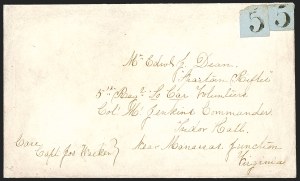 5 5
Mr Edwd J. Dean.
"Spartan Rifles"
5th Reg. So Car Volunteers
Col. Mc Jenkins Commander
Tudor Hall.
Near Manassas Junction
Virginia
Care
Capt Jos Walker